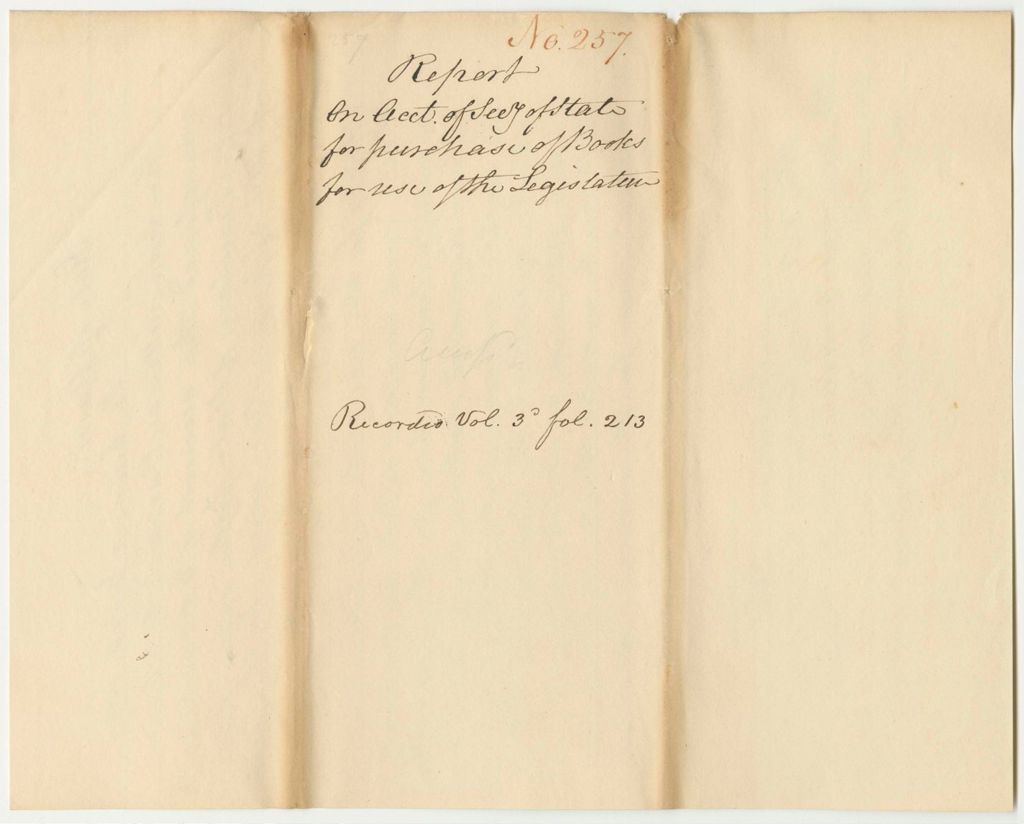 No. 257.
Report
On Acct. of Secy of State
for purchase of Books
for use of the Legislature
Recorded Vol. 3d fol. 213